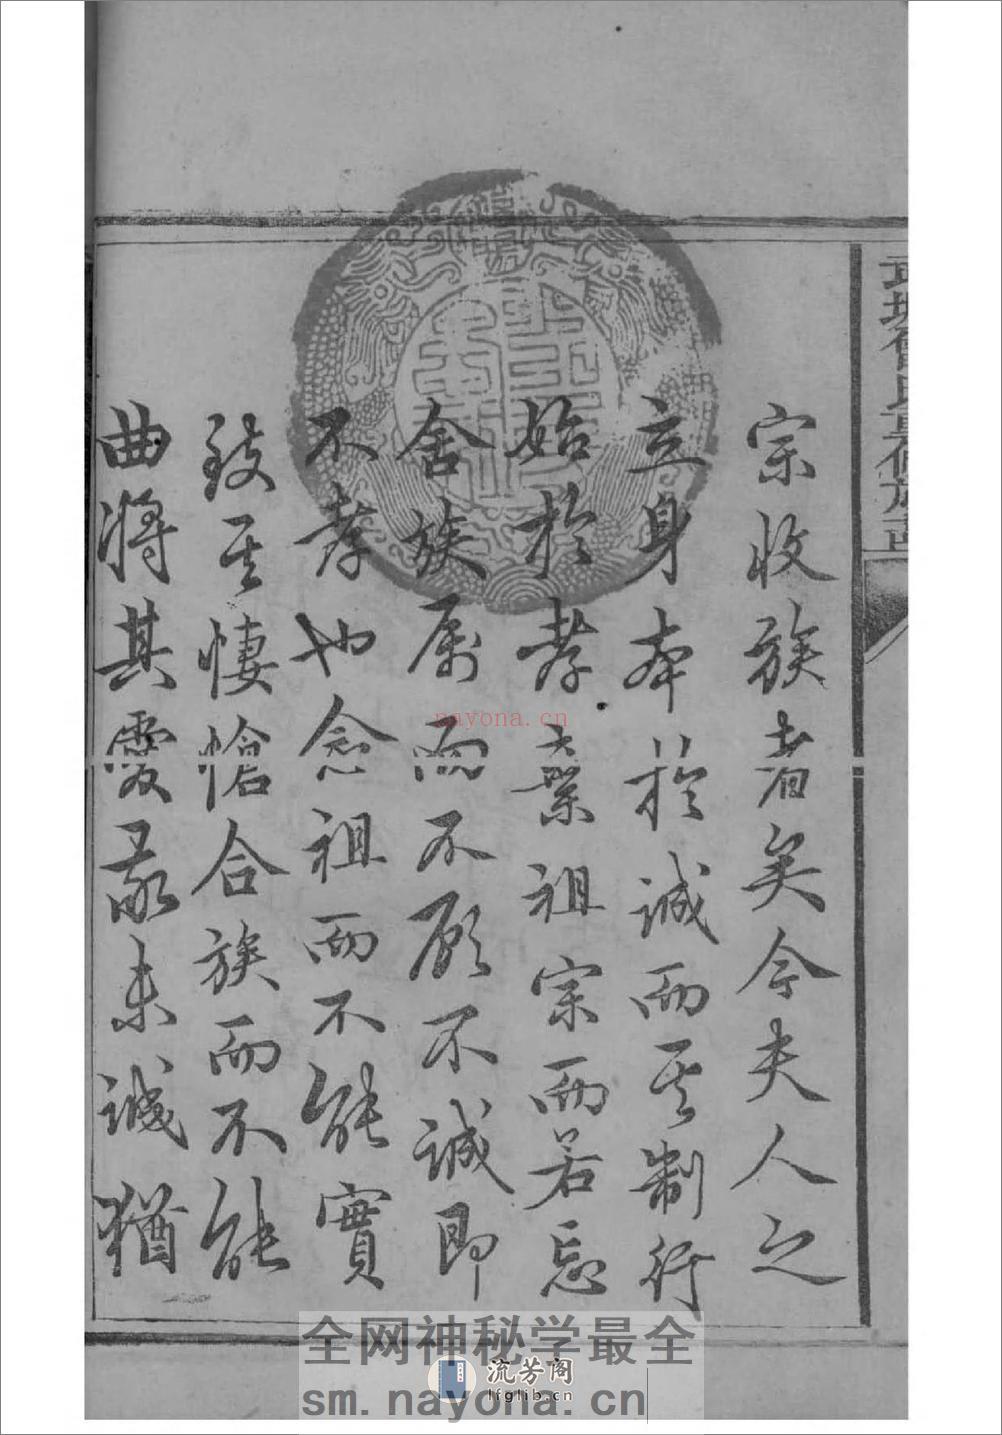 宗收族者矣今夫人之
立身本於誠而其制行
始於孝棄祖宗而若忘
舍族属而不顧不誠即
不孝也念祖而不能實
致其悽愴合族而不能
曲將其愛敬未誠猶
nayona.cn
全网神秘学最全
流芳阁
lfglib.cn
sm.nayona.cn